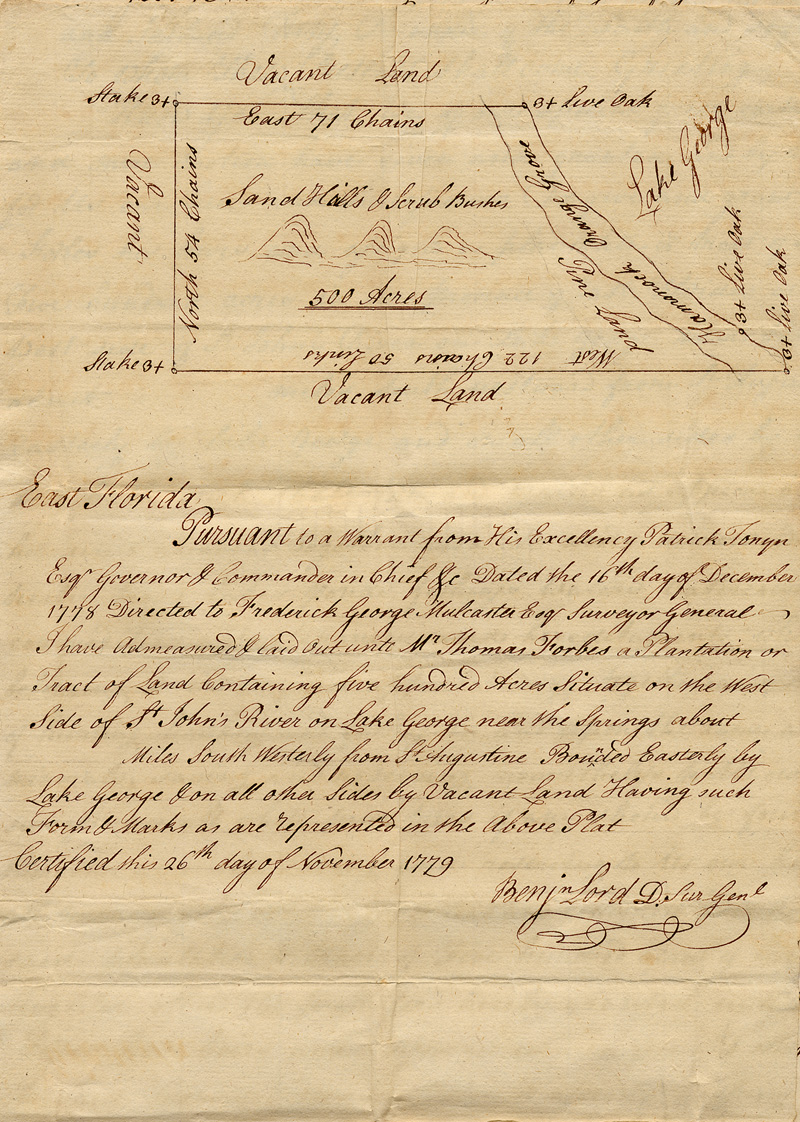 Vacant Land
Stake 3+
3+ Live Oak
East 71 Chains
Lake George
Vacant
North 54 Chains
Sand Hills & Scrub Bushes
Orange Grove
Hammock
Pine Land
3+ Live Oak
3+ Live Oak
500 Acres
West 122 Chains 50 Links
Stake 3+
Vacant Land
East Florida
Pursuant to a Warrant from His Excellency Patrick Tonyn
Esqr Governor & Commander in Chief &c Dated the 16th day of December
1778 Directed to Frederick George Mulcaster Esqr Surveyor General
I have Admeasured & laid Out unto Mr Thomas Forbes a Plantation or
Tract of Land Containing five hundred Acres Situate on the West
Side of St John's River on Lake George near the Springs about
Miles South Westerly from St Augustine Bounded Easterly by
Lake George & on all other Sides by Vacant Land Having such
Form & Marks as are represented in the Above Plat
Certified this 26th day of November 1779
Benjn Lord D. Sur Genl